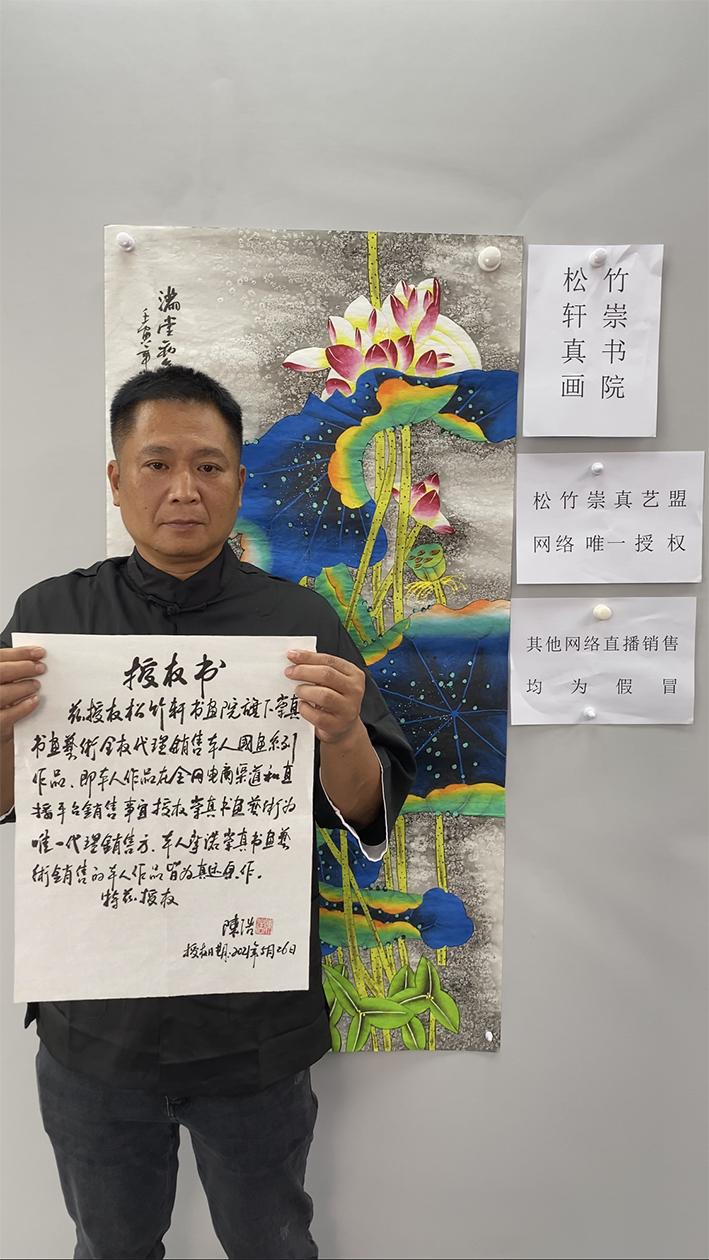 滿堂
壬寅年
授权书
兹授权松竹轩书画院旗下崇真
书画藝術全权代理銷售本人國画系列
作品、即本人作品在全网电商渠道和直
播平台銷售事宜授权崇真书画藝術为
唯一代理銷售方.本人承诺崇真书画藝
術銷售的本人作品皆为真迹原作.
特兹授权
陳浩
授权日期:2021年5月26日
松竹
轩崇
真书
画院
松竹崇真艺盟
网络唯一授权
其他网络直播销售
均为假冒